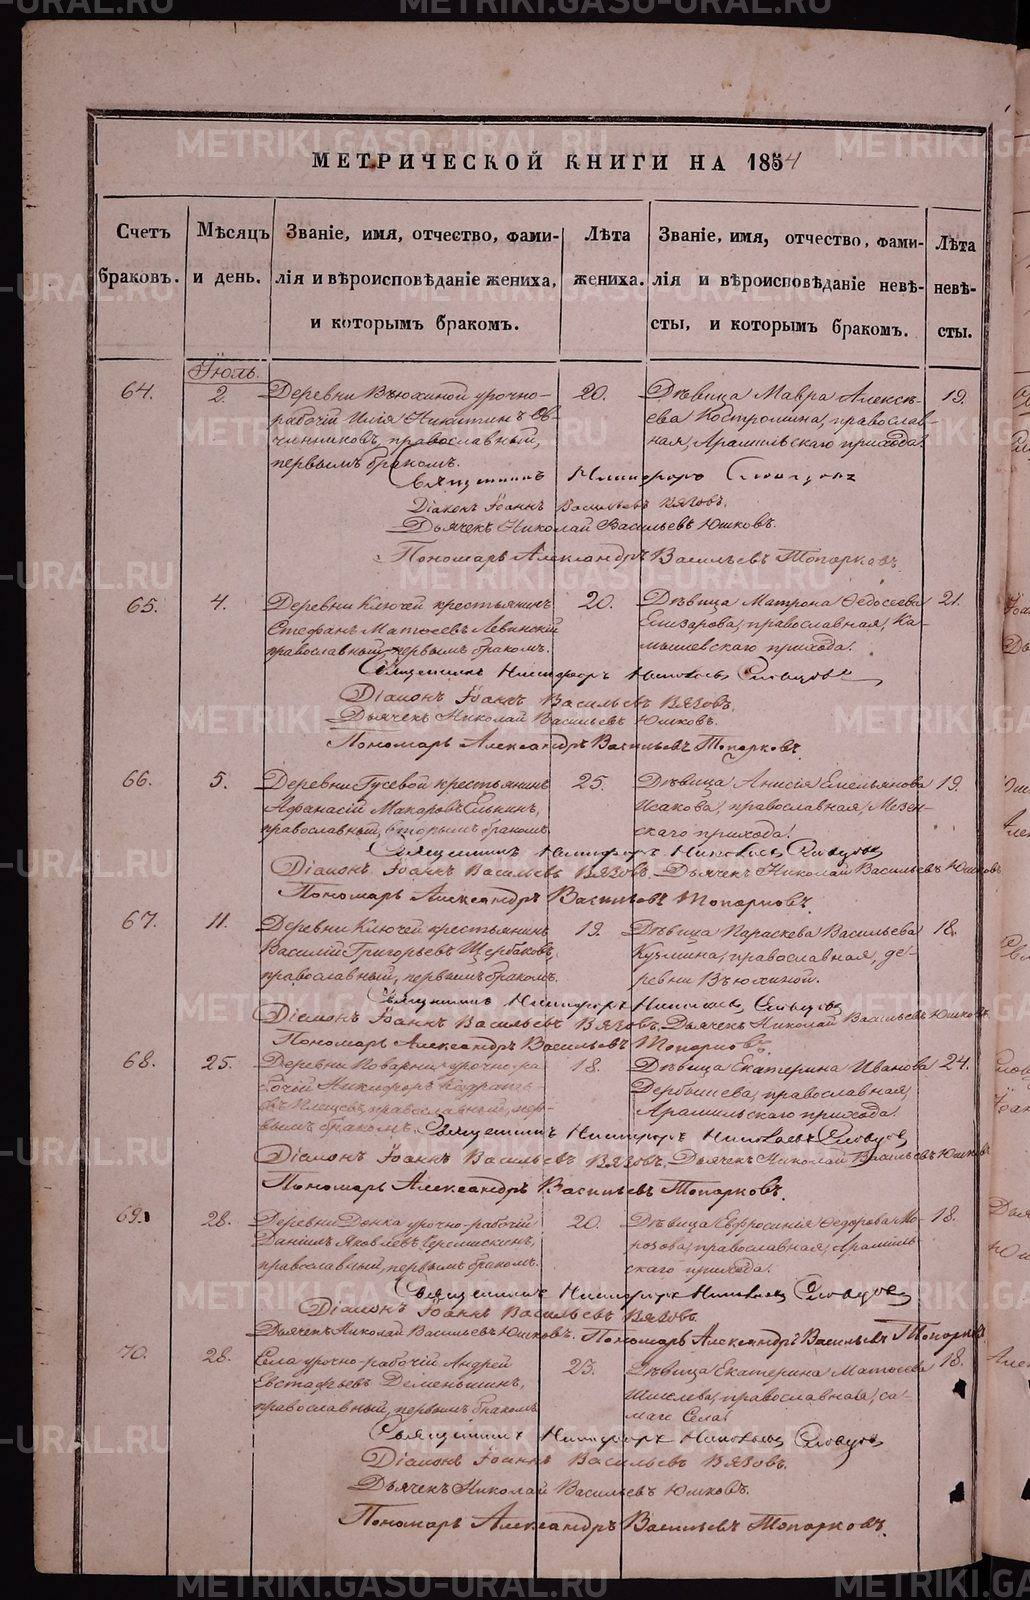 МЕТРИЧЕСКОЙ КНИГИ НА 1854
Счетъ браковъ.
Мѣсяцъ и день.
Званіе, имя, отчество, фами-
лія и вѣроисповѣданіе жениха,
и которымъ бракомъ.
Лѣта
жениха.
Званіе, имя, отчество, фами-
лія и вѣроисповѣданіе невѣ-
сты, и которымъ бракомъ.
Лѣта
невѣ-
сты.
Іюль.
64. 2. Деревни Вьюхиной урочно- 20. Дѣвица Мавра Алексѣ- 19.
рабочій Илія Никитинъ Ов- ева Костромина, православ-
чинниковъ, православный, ная, Арамильскаго прихода.
первымъ бракомъ.
Священникъ Никифоръ Словцовъ
Діаконъ Іоаннъ Васильевъ Вяговъ.
Дьячекъ Николай Васильевъ Юшковъ.
Пономарь Александръ Васильевъ Топорковъ.
65. 4. Деревни Ключей крестьянинъ 20. Дѣвица Матрона Ѳедосеева 21.
Стефанъ Матѳеевъ Левинскій Елизарова, православная, Ка-
православный, первымъ бракомъ. мышевскаго прихода.
Священникъ Никифоръ Николаевъ Словцовъ
Діаконъ Іоаннъ Васильевъ Вяговъ.
Дьячекъ Николай Васильевъ Юшковъ.
Пономарь Александръ Васильевъ Топорковъ.
66. 5. Деревни Гусевой крестьянинъ 25. Дѣвица Анисія Емельянова 19.
Аѳанасій Макаровъ Елькинъ, Исакова, православная, Мезен-
православный, вторымъ бракомъ. скаго прихода.
Священникъ Никифоръ Николаевъ Словцовъ
Діаконъ Іоаннъ Васильевъ Вяговъ. Дьячекъ Николай Васильевъ Юшковъ
Пономарь Александръ Васильевъ Топорковъ.
67. 11. Деревни Ключей крестьянинъ 19. Дѣвица Параскева Васильева 18.
Василій Григорьевъ Щербаковъ, Кузмина, православная, де-
православный, первымъ бракомъ. ревни Вьюхиной.
Священникъ Никифоръ Николаевъ Словцовъ
Діаконъ Іоаннъ Васильевъ Вяговъ. Дьячекъ Николай Васильевъ Юшковъ.
Пономарь Александръ Васильевъ Топорковъ.
68. 25. Деревни Поварни урочно-ра- 18. Дѣвица Екатерина Иванова 24.
бочій Никифоръ Кодрать- Дербышева, православная,
евъ православный, пер- Арамильскаго прихода.
вымъ бракомъ. Священникъ Никифоръ Николаевъ Словцовъ
Діаконъ Іоаннъ Васильевъ Вяговъ. Дьячекъ Николай Васильевъ Юшковъ
Пономарь Александръ Васильевъ Топорковъ.
69. 28. Деревни Донка урочно-рабочій 20. Дѣвица Евфросинія Ѳедорова Мо- 18.
Даніилъ Яковлевъ Черемискинъ, розова, православная, Арамиль-
православный, первымъ бракомъ. скаго прихода.
Священникъ Никифоръ Николаевъ Словцовъ
Діаконъ Іоаннъ Васильевъ Вяговъ.
Дьячекъ Николай Васильевъ Юшковъ. Пономарь Александръ Васильевъ Топорковъ
70. 28. Села урочно-рабочій Андрей 23. Дѣвица Екатерина Матѳеева 18.
Евстафьевъ Деменьшинъ, православная, са-
православный, первымъ бракомъ маго Села.
Священникъ Никифоръ Николаевъ Словцовъ
Діаконъ Іоаннъ Васильевъ Вяговъ.
Дьячекъ Николай Васильевъ Юшковъ.
Пономарь Александръ Васильевъ Топорковъ.
METRIKI.GASO-URAL.RU